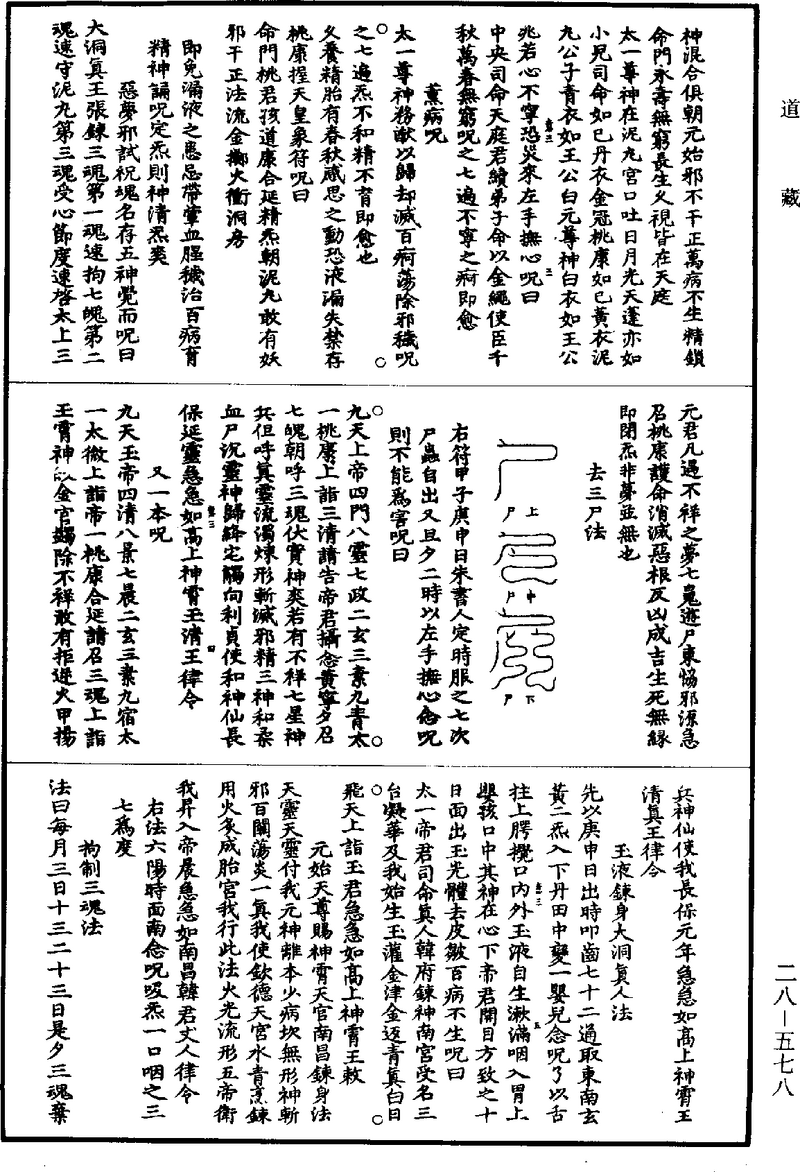 道藏
神混合俱朝元始邪不干正萬病不生精鎖
命門永壽無窮長生久視皆在天庭
太一尊神在泥丸宮口吐日月光天蓬亦如
小兒司命如巳丹衣金冠桃康如巳黃衣泥
九公子青衣如王公白元尊神白衣如王公
兆若心不寧恐災來左手撫心呪曰
中央司命天庭君續弟子命以金繩使臣千
秋萬春無窮呪之七遍不寧之痾即愈
薰病呪
太一尊神務猷以歸却滅百痾蕩除邪穢呪
之七遍炁不和精不育即愈也
久養精胎有春秋感思之動恐液漏失禁存
桃康握天皇象符呪曰
命門桃君孩道康合延精炁朝泥丸敢有妖
邪干正法流金擲火衝洞房
即免漏液之患忌帶葷血腥穢治百病育
精神誦呪定炁則神清炁爽
惡夢邪試祝魂名存五神覺而呪曰
大洞真王張鍊三魂第一魂速拘七魄第二
魂速守泥丸第三魂受心節度速啓太上三
元君凡遇不祥之夢七鬼遊尸東恊邪源急
召桃康護命消滅惡根反凶成吉生死無緣
即閉炁非夢並無也
去三尸法
上尸
中尸
下尸
右符甲子庚申日朱書人定時服之七次
尸蟲自出又旦夕二時以左手撫心念呪
則不能爲害呪曰
九天上帝四門八靈七政二玄三素九青太
一桃康上詣三清請告帝君攝念黄寧夕召
七魄朝呼三魂伏寶神爽若有不祥七星神
兵但呼真靈流濁煉形斬滅邪精三神和柔
血尸沉靈神歸絳宅觸向利貞使和神仙長
保延靈急急如高上神霄玉清王律令
又一本呪
九天玉帝四清八景七晨二玄三素九宿太
一太微上詣帝一桃康合延請召三魂上詣
王霄神 金官蠲除不祥敢有拒逆火甲揚
兵神仙使我長保元年急急如高上神霄王
清真王律令
玉液鍊身大洞真人法
先以庚申日日出時叩齒七十二通取東南玄
黃二炁入下丹田中變一嬰兒念呪了以舌
拄上腭攪口內外玉液自生漱滿咽入胃上
嬰孩口中其神在心下帝君開目方致之十
日面出玉光體去皮皺百病不生呪曰
太一帝君司命真人韓府鍊神南宮受名三
台凝華及我始生玉灌金津金返青真白日
飛天上詣玉君急急如高上神霄王敕
元始天尊賜神霄天官南昌鍊身法
天靈天靈付我元神離本少病坎無形神斬
邪百關蕩炎一真我使欽德天宮水青烹鍊
用火炙成胎宮我行此法火光流形五帝衛
我昇入帝晨急急如南昌韓君丈人律令
右法六陽時面南念呪吸炁一口咽之三
七爲度
拘制三魂法
法曰每月三日十三二十三日是夕三魂棄
二八—五七八